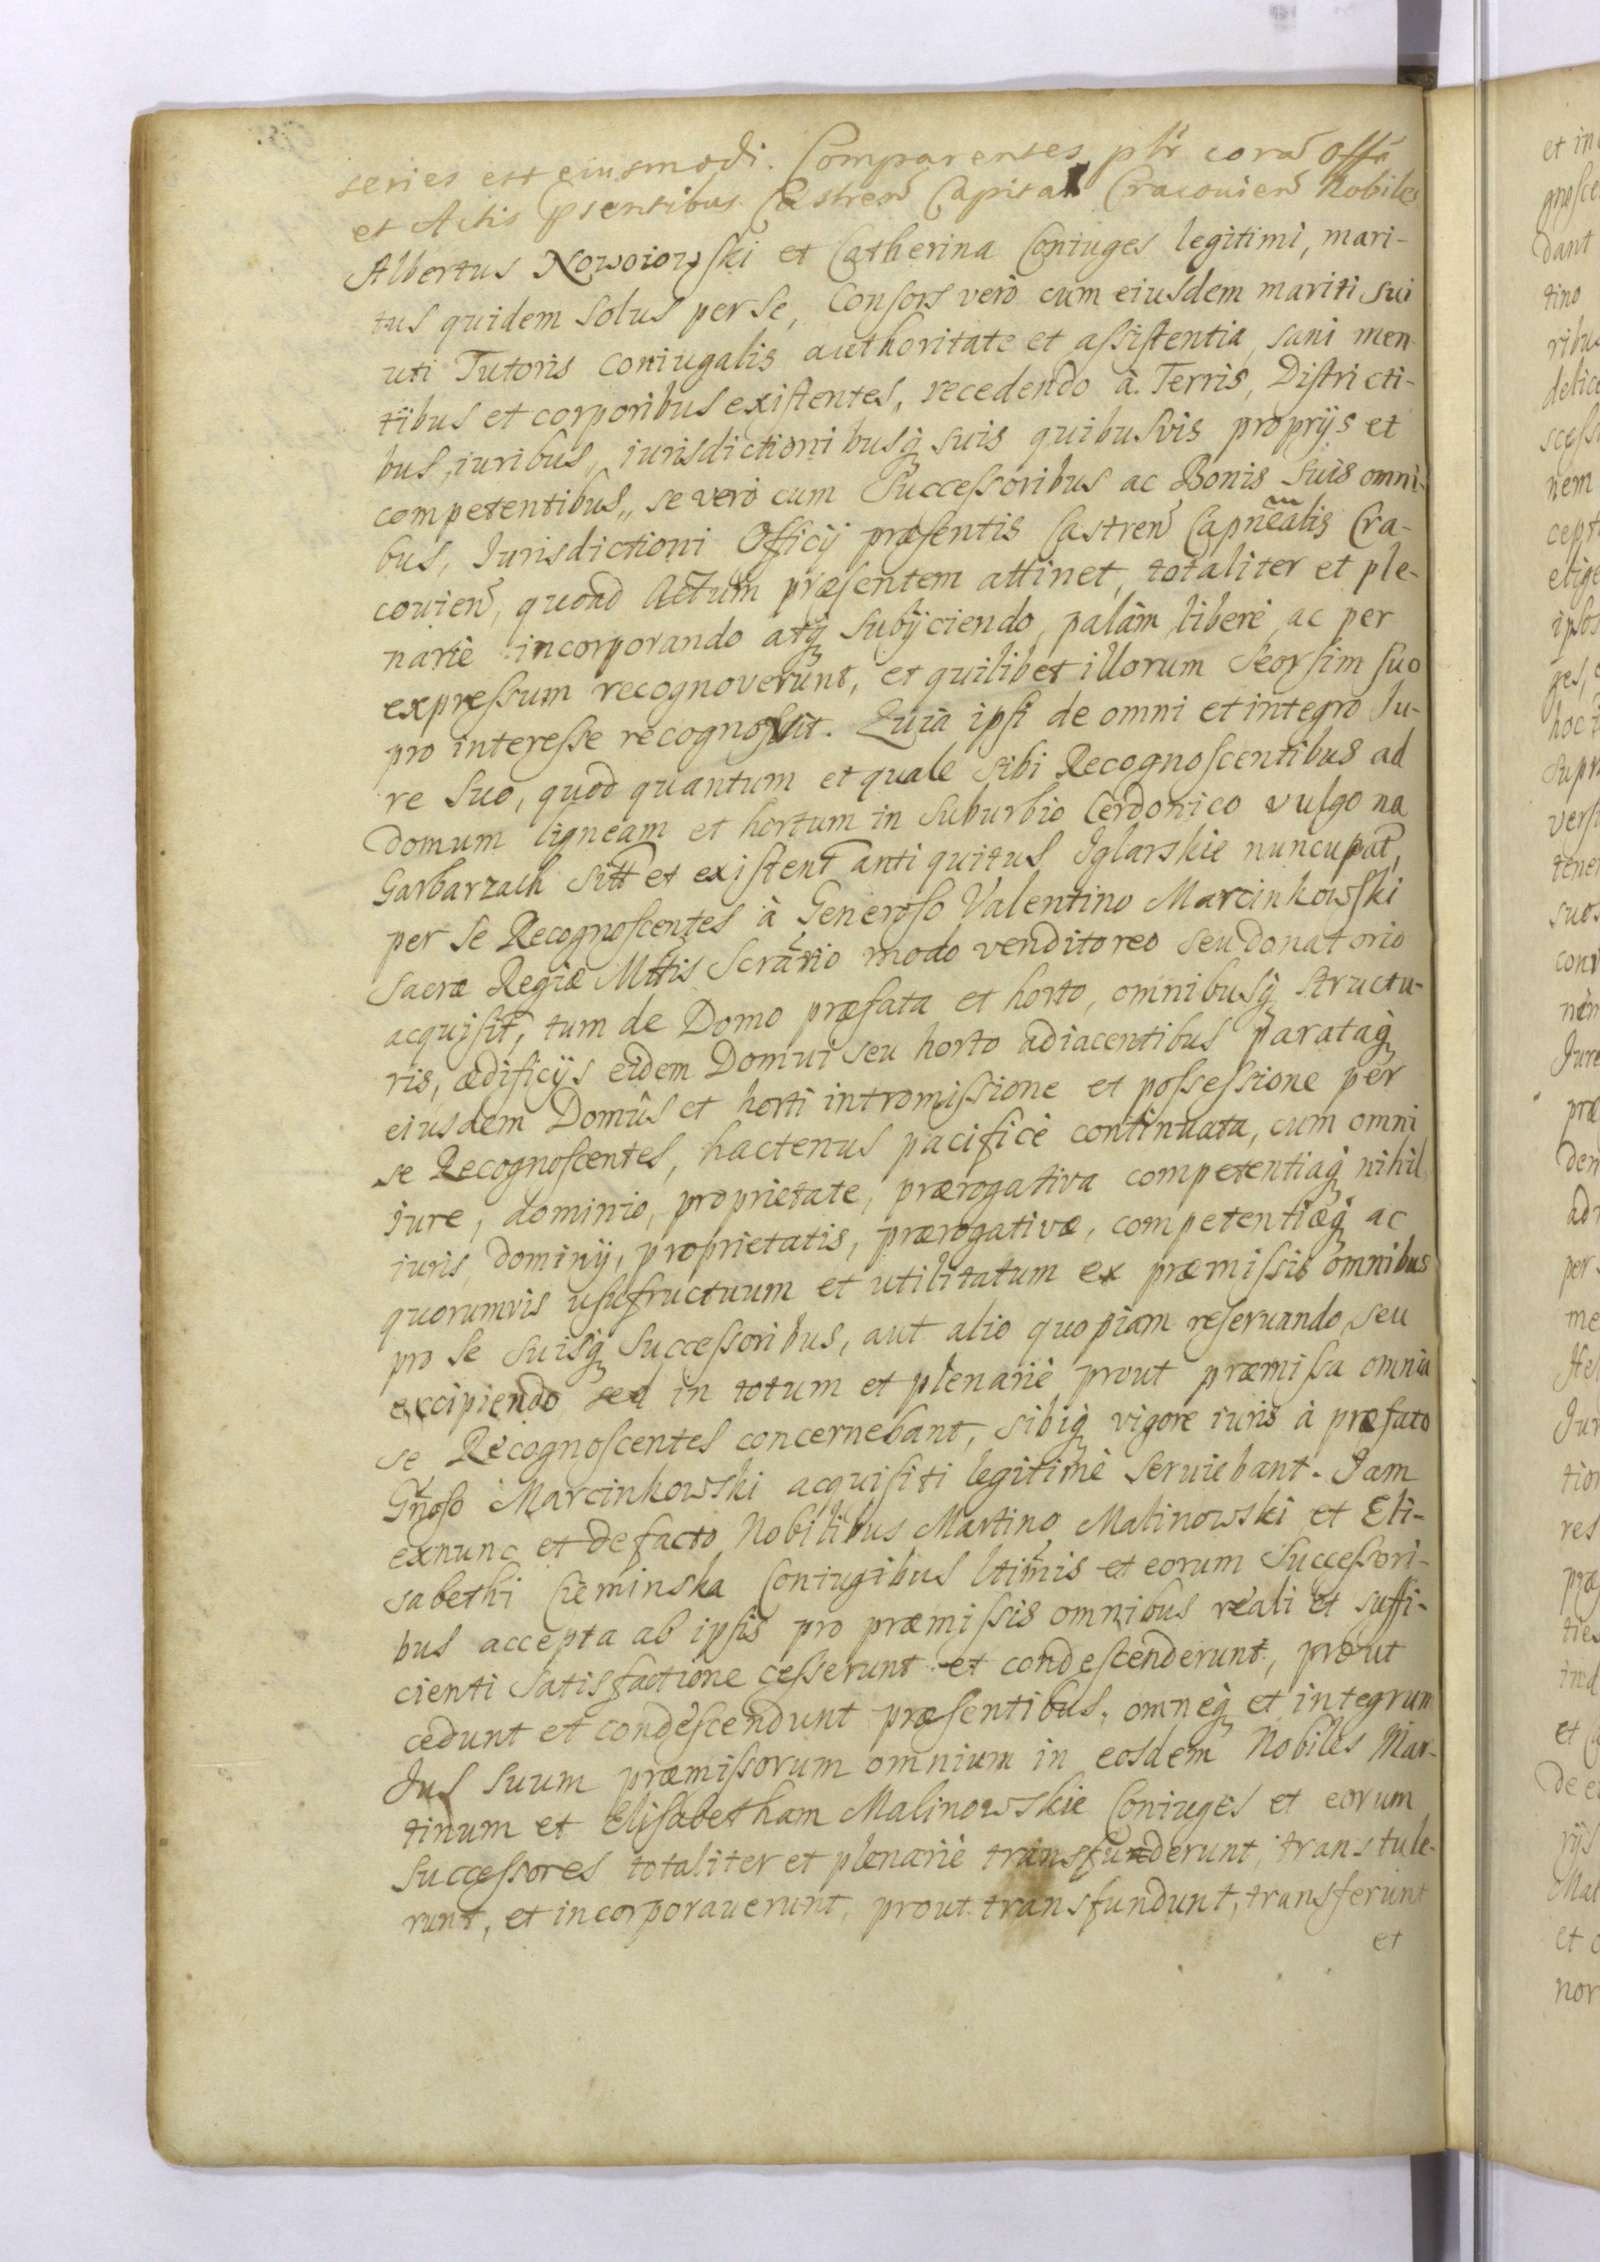 series est eiusmodi. Comparentes pltr corã Offõ
et Actis pñsentibus Castreñ Capital Cracovieñ Nobiles
Albertus Nowoiowski et Catherina Coniuges legitimi, mari-
tus quidem solus per se, Consors verò cum eiusdem mariti sui
uti Tutoris coniugalis authoritate et assistentia, sani men
tibus et corporibus existentes, recedendo à Terris, Districti-
bus, iuribus, iurisdictionibusq suis quibusvis proprijs et
competentibus, se verò cum Successoribus ac Bonis suis omni-
bus, Jurisdictioni Officij præsentis Castreñ Capnẽalis Cra-
covieñ, quoad Actum præsentem attinet, totaliter et ple-
nariè incorporando atq subijciendo, palàm, liberè, ac per
expressum recognoverunt, et quilibet illorum seorsim suo
pro interesse recognovit. Quia ipsi de omni et integro Ju-
re suo, quod quantum et quale sibi Recognoscentibus ad
domum ligneam et hortum in suburbio Cerdonico vulgo na
Garbarzach sitt et existent antiquitus Iglarskie nuncupat,
per se Recognoscentes à Generoso Valentino Marcinkowski
Sacræ Regiæ Mttis Scrãrio modo venditoreo seu donatorio
acquisit, tum de Domo præfata et horto, omnibusq structu-
ris, ædificijs eidem Domui seu horto adiacentibus parataq
eiusdem Domûs et horti intromissione et possessione per
se Recognoscentes, hactenus pacificè continuata, cum omni
iure, dominio, proprietate, prærogativa competentiaq nihil
iuris, dominij, proprietatis, prærogativæ, competentiæq ac
quorumvis usufructuum et utilitatum ex præmissis omnibus
pro se suisq successoribus, aut alio quopiam reservando seu
excipiendo sed in totum et plenariè prout præmissa omnia
se Recognoscentes concernebant, sibiq vigore iuris à præfato
Gñoso Marcinkowski acquisiti legitimè serviebant. Jam
exnunc et defacto Nobilibus Martino Malinowski et Eli-
sabethi Cieminska Coniugibus ltimis et eorum Successori-
bus accepta ab ipsis pro præmissis omnibus reali et suffi-
cienti satisfactione cesserunt et condescenderunt, prout
cedunt et condescendunt præsentibus, omneq et integrum
Jus suum præmissorum omnium in eosdem Nobiles Mar-
tinum et Elisabetham Malinowskie Coniuges et eorum
successores totaliter et plenariè transfunderunt, transtule-
runt, et incorporaverunt, prout transfundunt, transferunt
et